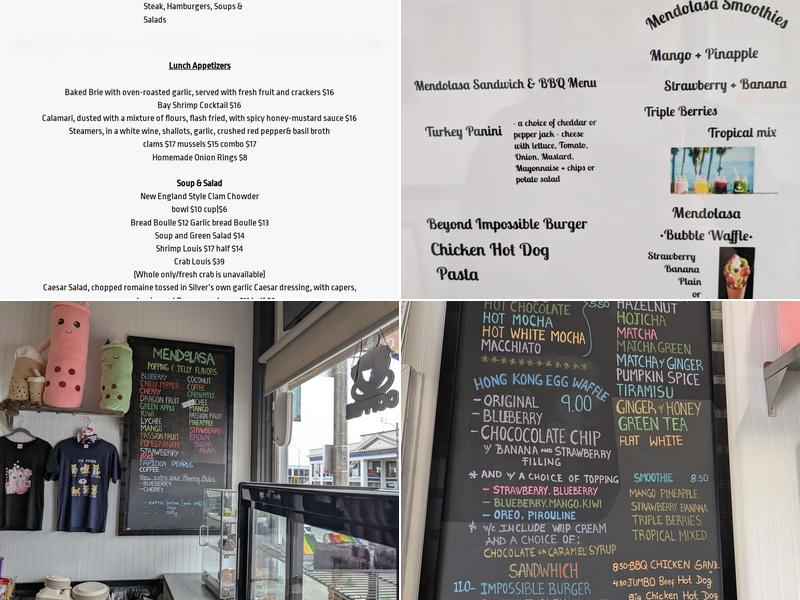 Steak, Hamburgers, Soups &
Salads
Lunch Appetizers
Baked Brie with oven-roasted garlic, served with fresh fruit and crackers $16
Bay Shrimp Cocktail $16
Calamari, dusted with a mixture of flours, flash fried, with spicy honey-mustard sauce $16
Steamers, in a white wine, shallots, garlic, crushed red pepper& basil broth
clams $17 mussels $15 combo $17
Homemade Onion Rings $8
Soup & Salad
New England Style Clam Chowder
bowl $10 cup|$6
Bread Boulle $12 Garlic bread Boulle $13
Soup and Green Salad $14
Shrimp Louis $17 half $14
Crab Louis $39
(Whole only/fresh crab is unavailable)
Caesar Salad, chopped romaine tossed in Silver's own garlic Caesar dressing, with capers,
Mendolasa Smoothies
Mango + Pinapple
Strawberry + Banana
Triple Berries
Tropical mix
Mendolasa Sandwich & BBQ Menu
Turkey Panini
- a choice of cheddar or
pepper jack - cheese
with lettuce, Tomato,
Onion, Mustard,
Mayonnaise + chips or
potato salad
Beyond Impossible Burger
Chicken Hot Dog
Pasta
Mendolasa
•Bubble Waffle•
Strawberry
Banana
Plain
or
MENDOLASA
POPPING & JELLY FLAVORS
BLUBERRY
CHILLI PEPPER
CHERRY
DRAGON FRUIT
GREEN APPLE
KIWI
LYCHEE
MANGO
PASSION FRUIT
POMEGRANATE
STRAWBERRY
ROSE
TAPIOCA PEARLS
COFFEE
COCONUT
COFFEE
GREENAPPLE
LYCHEE
MANGO
PASSION FRUIT
PINEAPPLE
STRAWBERRY
BROWN
SUGAR
AGAR
- BLUEBERRY
- CHERRY
HOT CHOCOLATE
HOT MOCHA
HOT WHITE MOCHA
MACCHIATO
5.50
HONG KONG EGG WAFFLE
9.00
- ORIGINAL
- BLUEBERRY
- CHOCOCOLATE CHIP
W/ BANANA AND STRAWBERRY
FILLING
* AND W/ A CHOICE OF TOPPING
- STRAWBERRY, BLUEBERRY
- BLUEBERRY, MANGO, KIWI
- OREO, PIROULINE
* WE INCLUDE WIP CREAM
AND A CHOICE OF;
CHOCOLATE OR CARAMEL SYRUP
SANDWHICH
11.0- IMPOSSIBLE BURGER
HAZELNUT
HOJICHA
MATCHA
MATCHA GREEN
MATCHA Y GINGER
PUMPKIN SPICE
TIRAMISU
GINGER Y HONEY
GREEN TEA
FLAT WHITE
SMOOTHIE 8.50
MANGO PINEAPPLE
STRAWBERRY BANANA
TRIPLE BERRIES
TROPICAL MIXED
8.50-BBQ CHICKEN SAND.
4.50 JUMBO Beef Hot Dog
Big Chicken Hot Dog